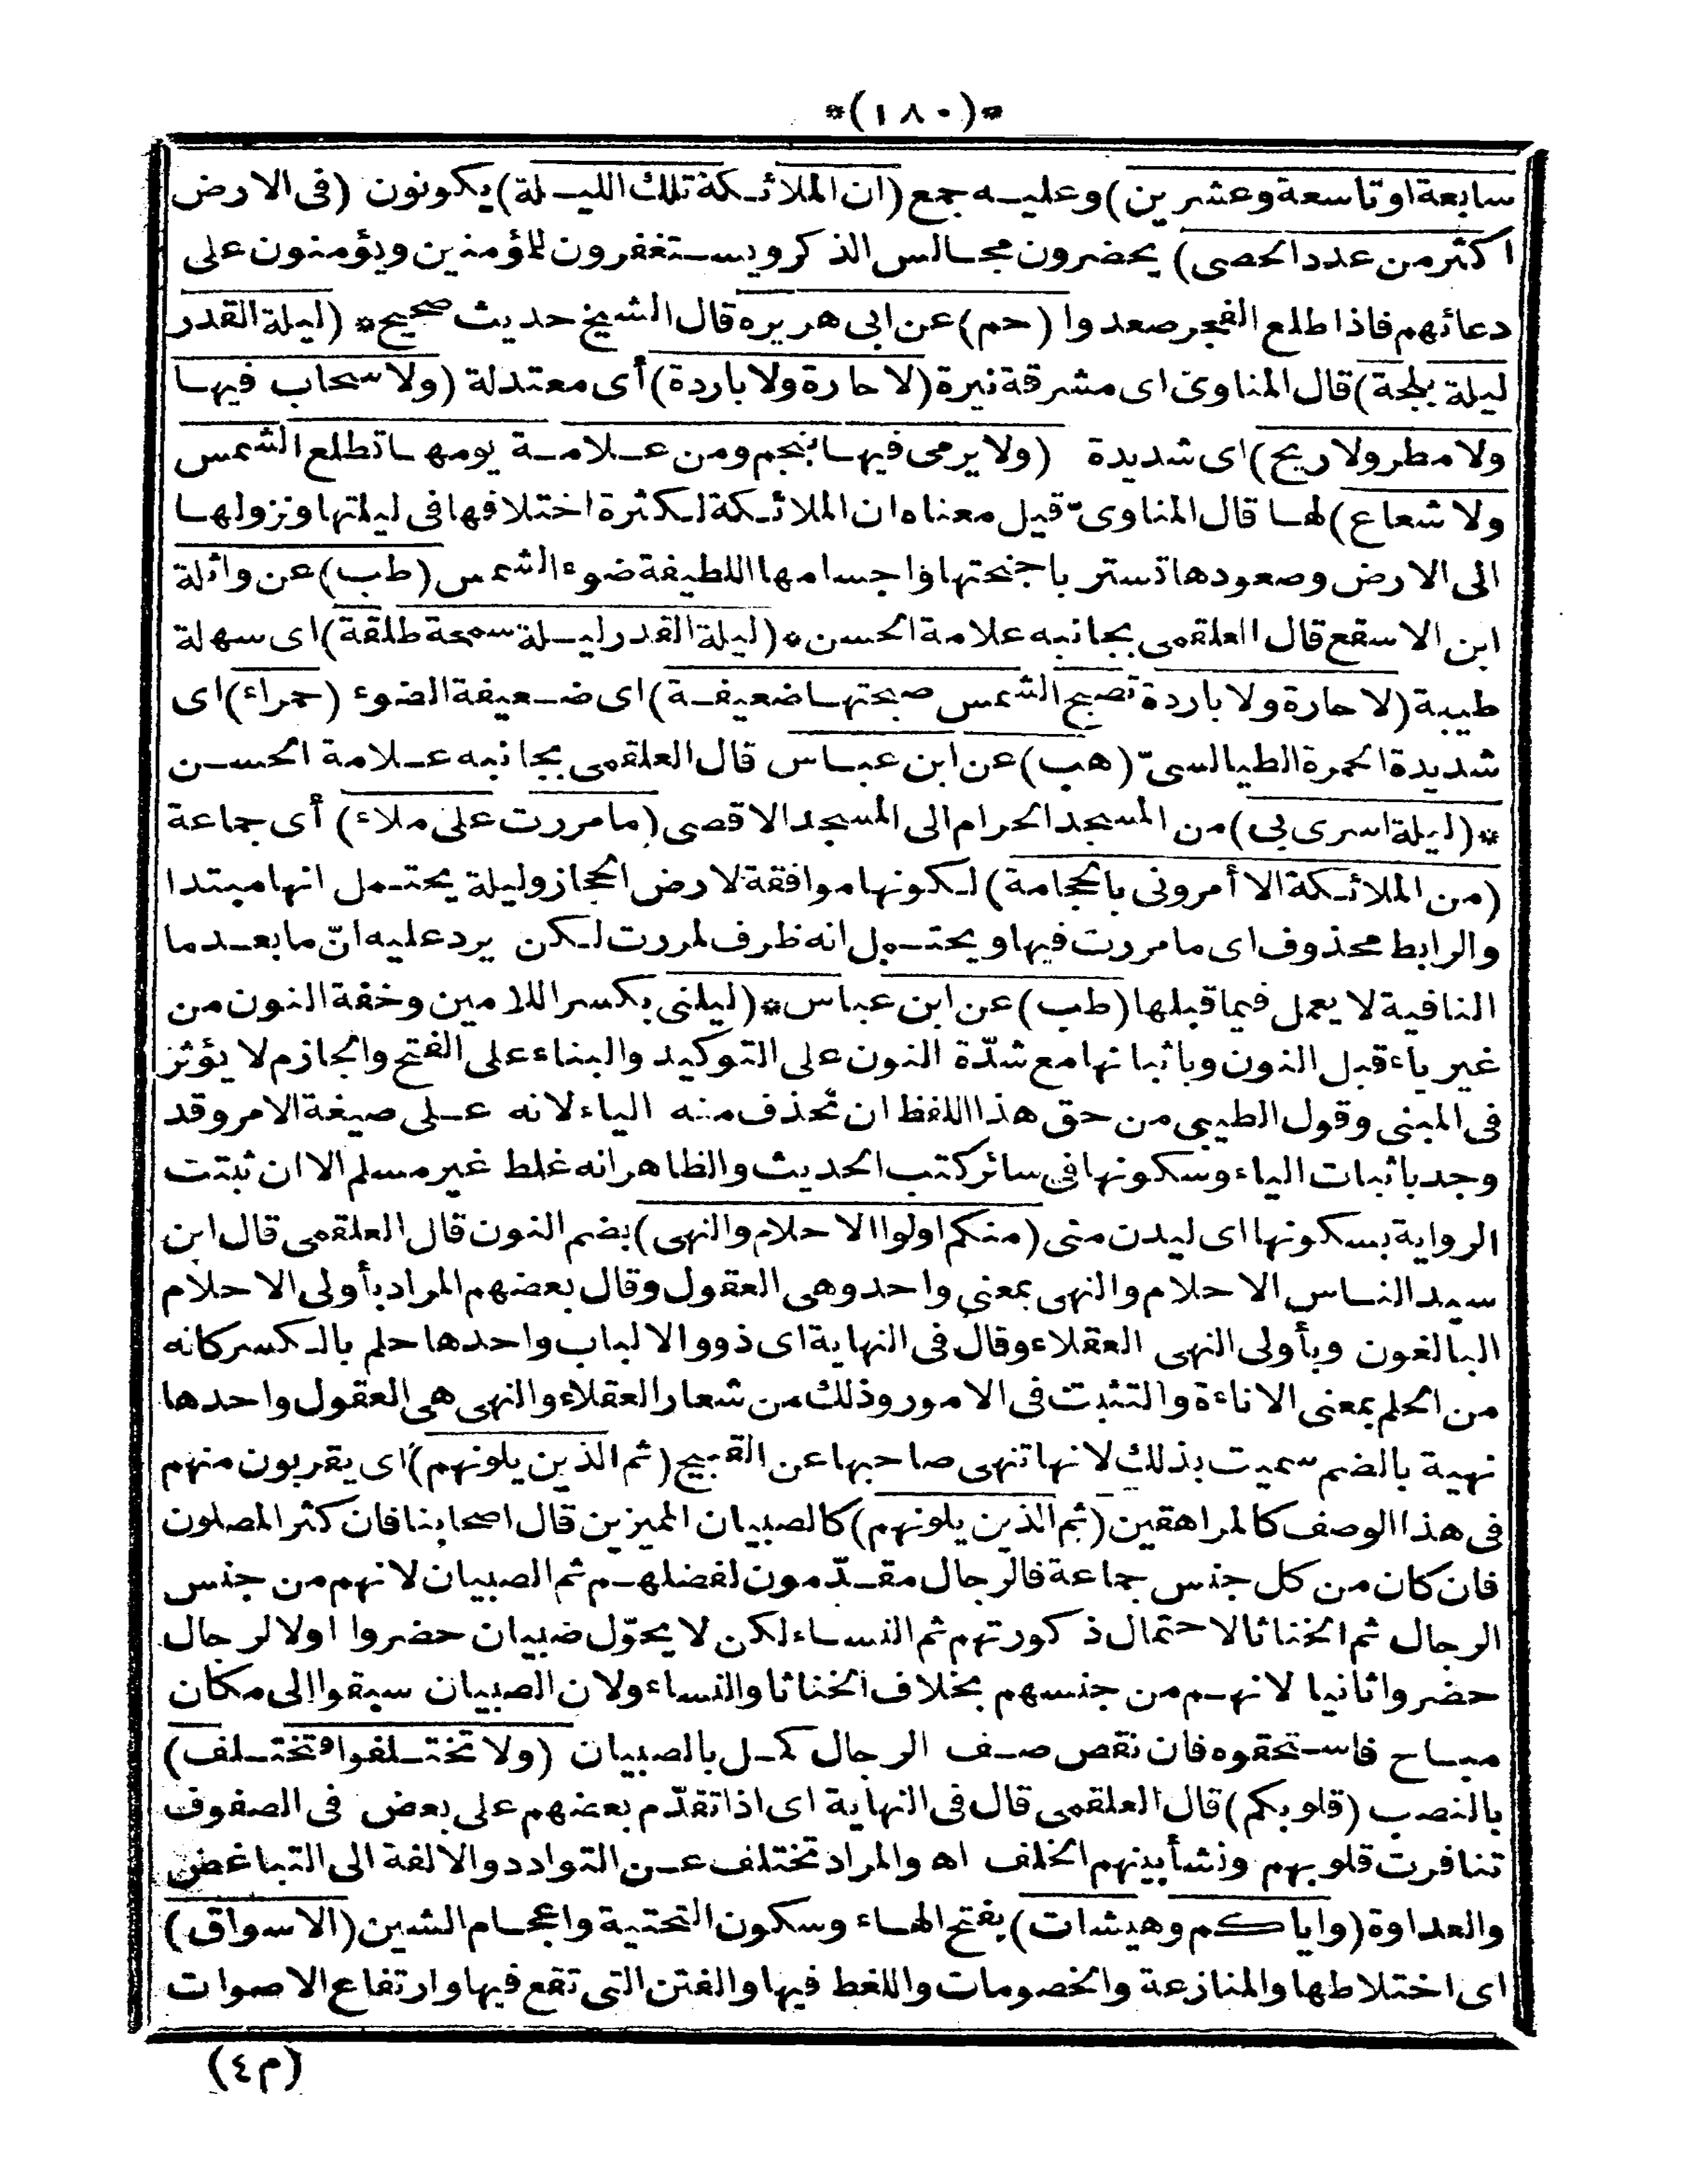 *(١٨٠)*
سابعة او تاسعة وعشرين) وعليه جمع (ان الملائكة تلك الليلة) يكونون (فى الارض
اكثر من عدد الحصى) يحضرون مجالس الذكر ويستغفرون للمؤمنين ويؤمنون على
دعائهم فاذا طلع الفجر صعدوا (حم) عن ابى هريره قال الشيخ حديث صحيح* (ليلة القدر
ليلة بلجة) قال المناوى اى مشرقة نيرة (لا حارة ولا باردة) أى معتدلة (ولا سحاب فيها
ولا مطر ولا ريح) اى شديدة (ولا يرمى فيها بنجم ومن علامة يومها تطلع الشمس
ولا شعاع) لها قال المناوىّ قيل معناه ان الملائكة لكثرة اختلافها فى ليلتها ونزولها
الى الارض وصعودها تستر باجنحتها واجسامها اللطيفة ضوء الشمس (طب) عن واثلة
ابن الاسقع قال العلقمى بجانبه علامة الحسن* (ليلة القدر ليلة سمحة طلقة) اى سهلة
طيبة (لا حارة ولا باردة تصبح الشمس صبحتها ضعيفة) اى ضعيفة الضوء (حمراء) اى
شديدة الحمرة الطيالسىّ (هب) عن ابن عباس قال العلقمى بجانبه علامة الحسن
*(ليلة اسرى بى) من المسجد الحرام الى المسجد الاقصى (ما مررت على ملاء) أى جماعة
(من الملائكة الا أمرونى بالحجامة) لكونها موافقة لارض الحجاز وليلة يحتمل انها مبتدا
والرابط محذوف اى ما مررت فيها ويحتمل انه ظرف لمررت لكن يرد عليه انّ ما بعد ما
النافية لا يعمل فيما قبلها (طب) عن ابن عباس* (ليلنى بكسر اللامين وخفة النون من
غير ياء قبل النون وباثباتها مع شدّة النون على التوكيد والبناء على الفتح والجازم لا يؤثر
فى المبنى وقول الطيبى من حق هذا اللفظ ان تحذف منه الياء لانه على صيغة الامر وقد
وجد باثبات الياء وسكونها فى سائر كتب الحديث والظاهر انه غلط غير مسلم الا ان ثبتت
الرواية بسكونها اى ليدن منى (منكم اولوا الاحلام والنهى) بضم النون قال العلقمى قال ابن
سيد الناس الاحلام والنهى بمعنى واحد وهى العقول وقال بعضهم المراد بأولى الاحلام
البالغون وبأولى النهى العقلاء وقال فى النهاية اى ذوو الالباب واحدها حلم بالكسر كانه
من الحلم بمعنى الاناءة والتثبت فى الامور وذلك من شعار العقلاء والنهى هى العقول واحدها
نهية بالضم سميت بذلك لانها تنهى صاحبها عن القبيح (ثم الذين يلونهم) اى يقربون منهم
فى هذا الوصف كالمراهقين (ثم الذين يلونهم) كالصبيان المميزين قال اصحابنا فان كثر المصلون
فان كان من كل جنس جماعة فالرجال مقدّمون لفضلهم ثم الصبيان لانهم من جنس
الرجال ثم الخناثا لاحتمال ذكورتهم ثم النساء لكن لا يحوّل صبيان حضروا اولا لرجال
حضروا ثانيا لانهم من جنسهم بخلاف الخناثا والنساء ولان الصبيان سبقوا إلى مكان
مباح فاستحقوه فان نقص صف الرجال كمل بالصبيان (ولا تختلفوا فتختلف)
بالنصب (قلوبكم) قال العلقمى قال فى النهاية اى اذا تقدّم بعضهم على بعض فى الصفوف
تنافرت قلوبهم ونشأ بينهم الخلف اه والمراد تختلف عن التوادد والالفة الى التباغض
والعداوة (واياكم وهيشات) بفتح الهاء وسكون التحتية واعجام الشين (الاسواق)
اى اختلاطها والمنازعة والخصومات واللغط فيها والفتن التى تقع فيها وارتفاع الاصوات
(م٤)